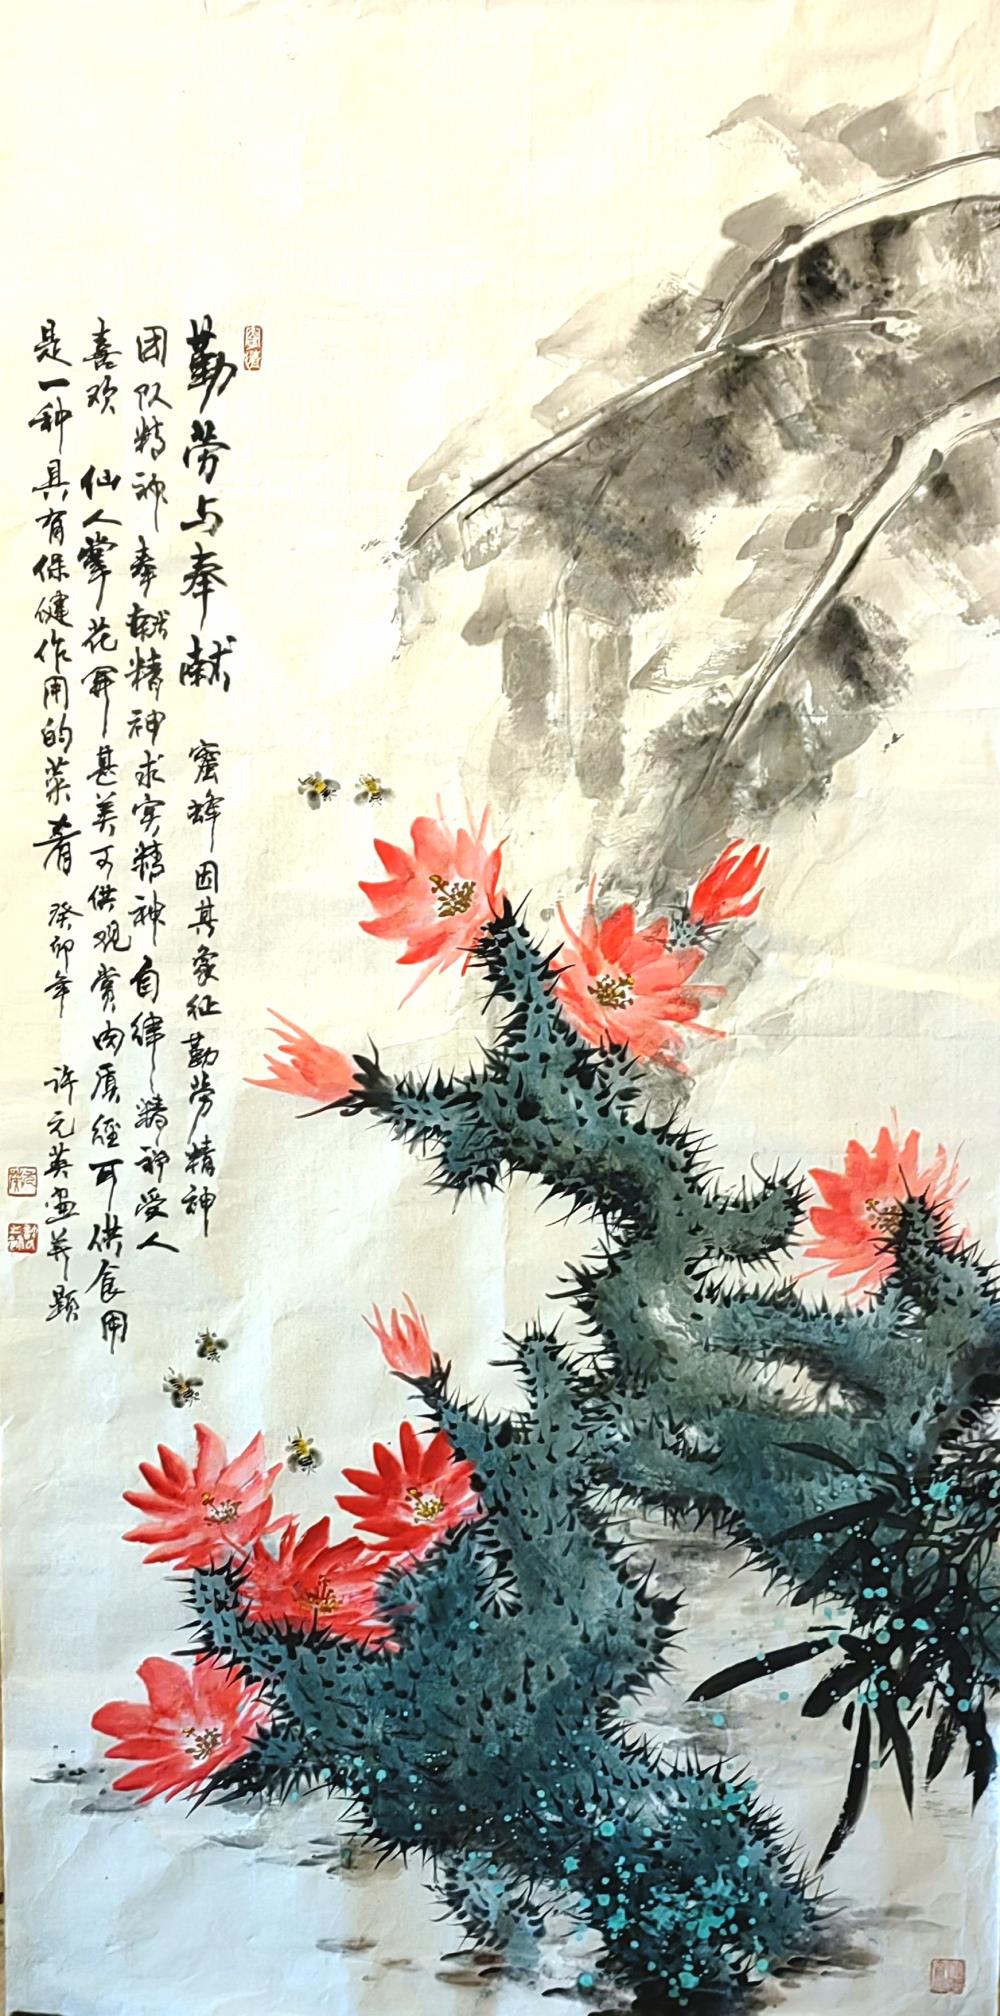 勤劳与奉献 蜜蜂因其象征勤劳精神
团队精神奉献精神求实精神自律精神受人
喜欢 仙人掌花开甚美可供观赏肉质经可供食用
是一种具有保健作用的菜肴 癸卯年 许元英画并题